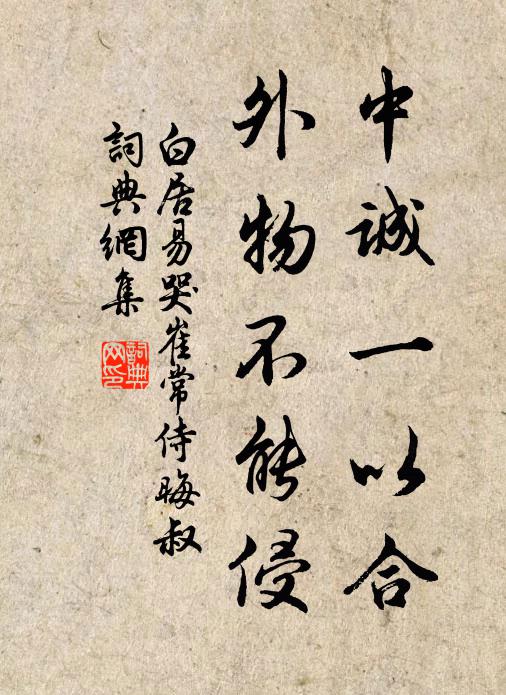 中誠一以合
外物不能侵
白居易哭崔常侍晦叔
詞典網集
詞典网印